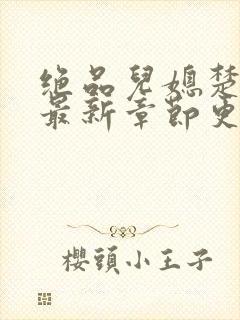 絕品兒媳楚
最新章節更
櫻頭小王子